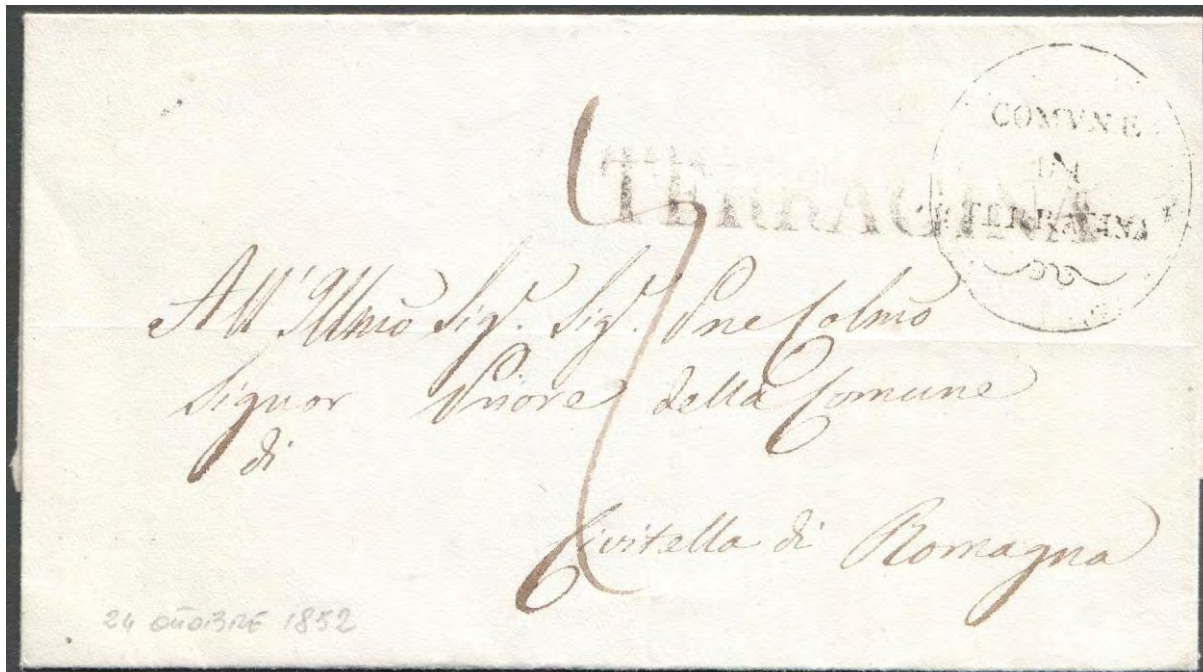 COMVNE
DI
TERRACINA
TERRACINA
All'Illmo Sig.r Sig.r Pne Colmo
Signor Priore della Comune
di
Civitella di Romagna
24 OTTOBRE 1852